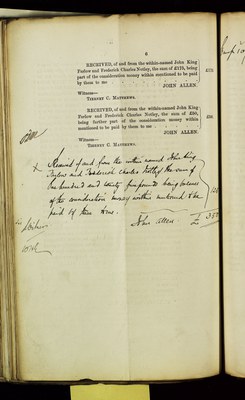 6
RECEIVED, of and from the within-named John King
Furlow and Frederick Charles Notley, the sum of £170, being
part of the consideration money within mentioned to be paid
by them to me
JOHN ALLEN.
Witness—
TIERNEY C. MATTHEWS.
RECEIVED, of and from the within-named John King
Furlow and Frederick Charles Notley, the sum of £60,
being further part of the consideration money within
mentioned to be paid by them to me
JOHN ALLEN.
Witness—
TIERNEY C. MATTHEWS.
Received of and from the within named John King
Furlow and Frederick Charles Notley the sum of
one hundred and twenty pounds being balance
of the consideration money within mentioned to be
paid by them to me.
John Allen
£ 350